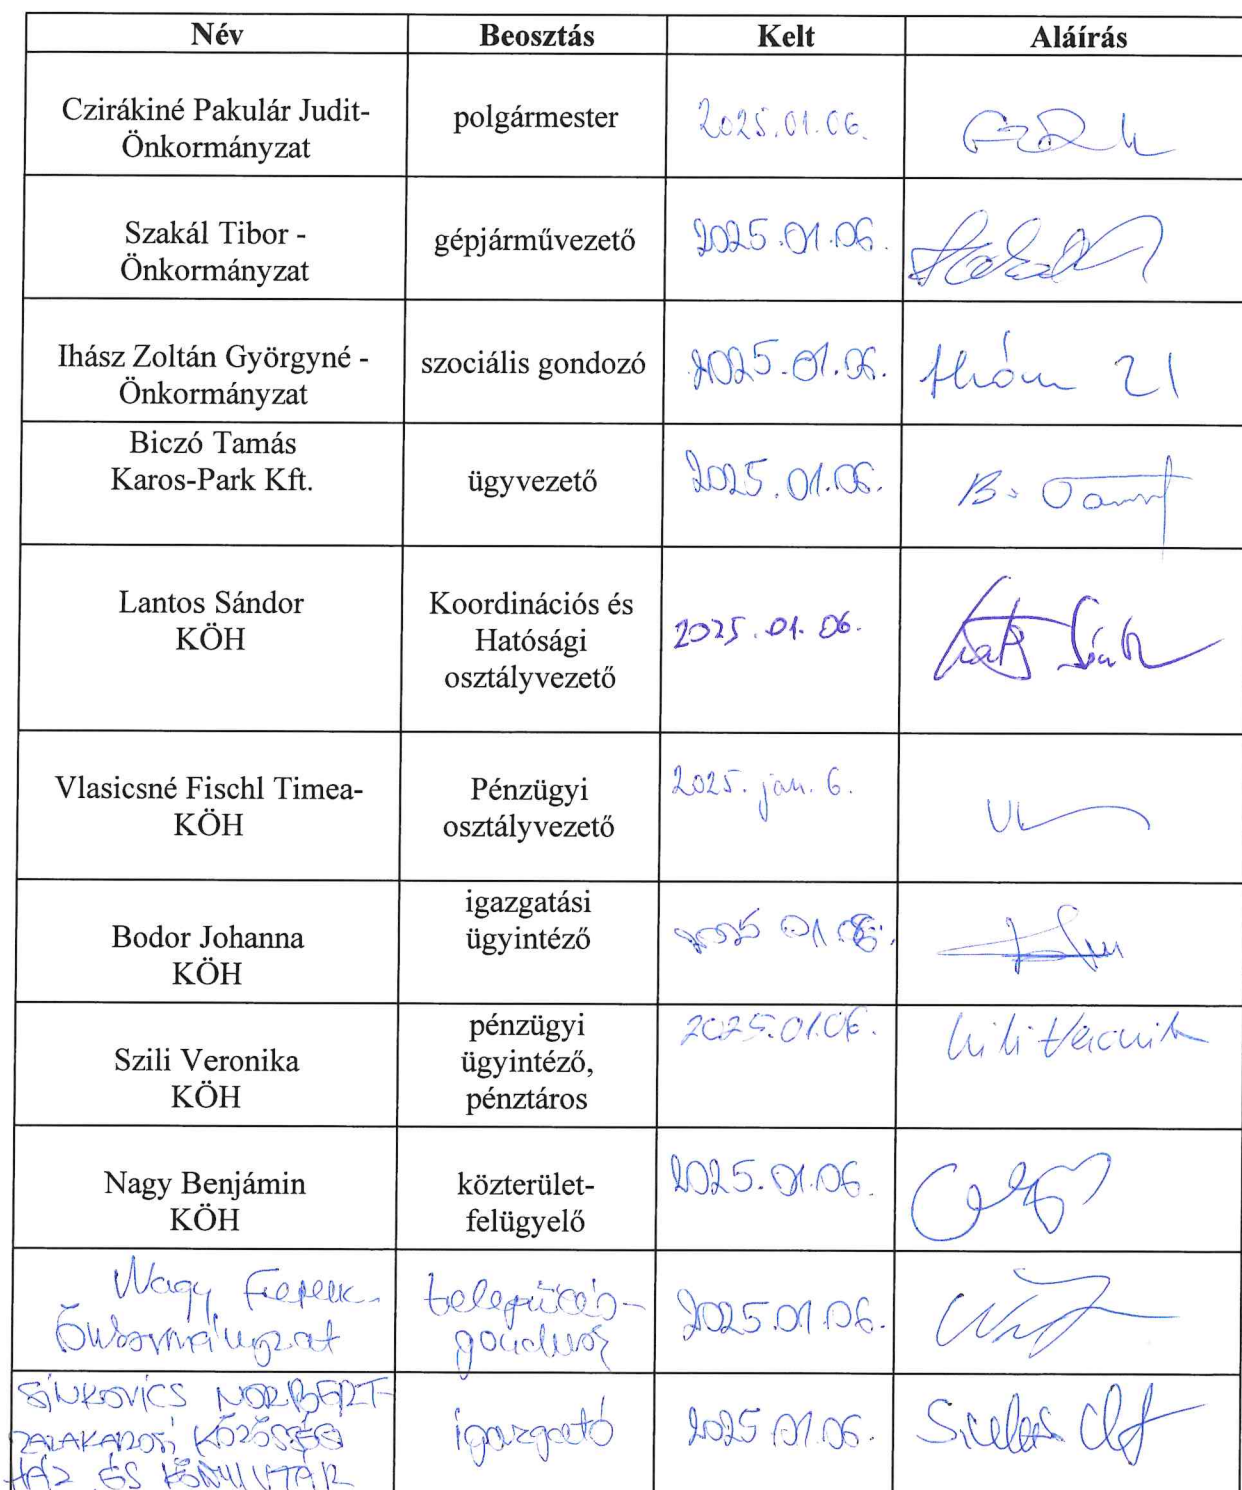 Név Beosztás Kelt Aláírás
Czirákiné Pakulár Judit-
Önkormányzat
polgármester
2025.01.06.
Szakál Tibor -
Önkormányzat
gépjárművezető
2025.01.06.
Ihász Zoltán Györgyné -
Önkormányzat
szociális gondozó
2025.01.06.
Biczó Tamás
Karos-Park Kft.
ügyvezető
2025.01.06.
B. Tamás
Lantos Sándor
KÖH
Koordinációs és
Hatósági
osztályvezető
2025.01.06.
Vlasicsné Fischl Timea-
KÖH
Pénzügyi
osztályvezető
2025. jan. 6.
Bodor Johanna
KÖH
igazgatási
ügyintéző
2025 01.06.
Szili Veronika
KÖH
pénzügyi
ügyintéző,
pénztáros
2025.01.06.
Szili Veronik
Nagy Benjámin
KÖH
közterület-
felügyelő
2025.01.06.
Nagy Ferenc-
Önkormányzat
település-
gondnok
2025.01.06.
SINKOVICS NORBERT-
ZALAKAROSI KÖZÖSSÉGI
HÁZ ÉS KÖNYVTÁR
igazgató
2025.01.06.